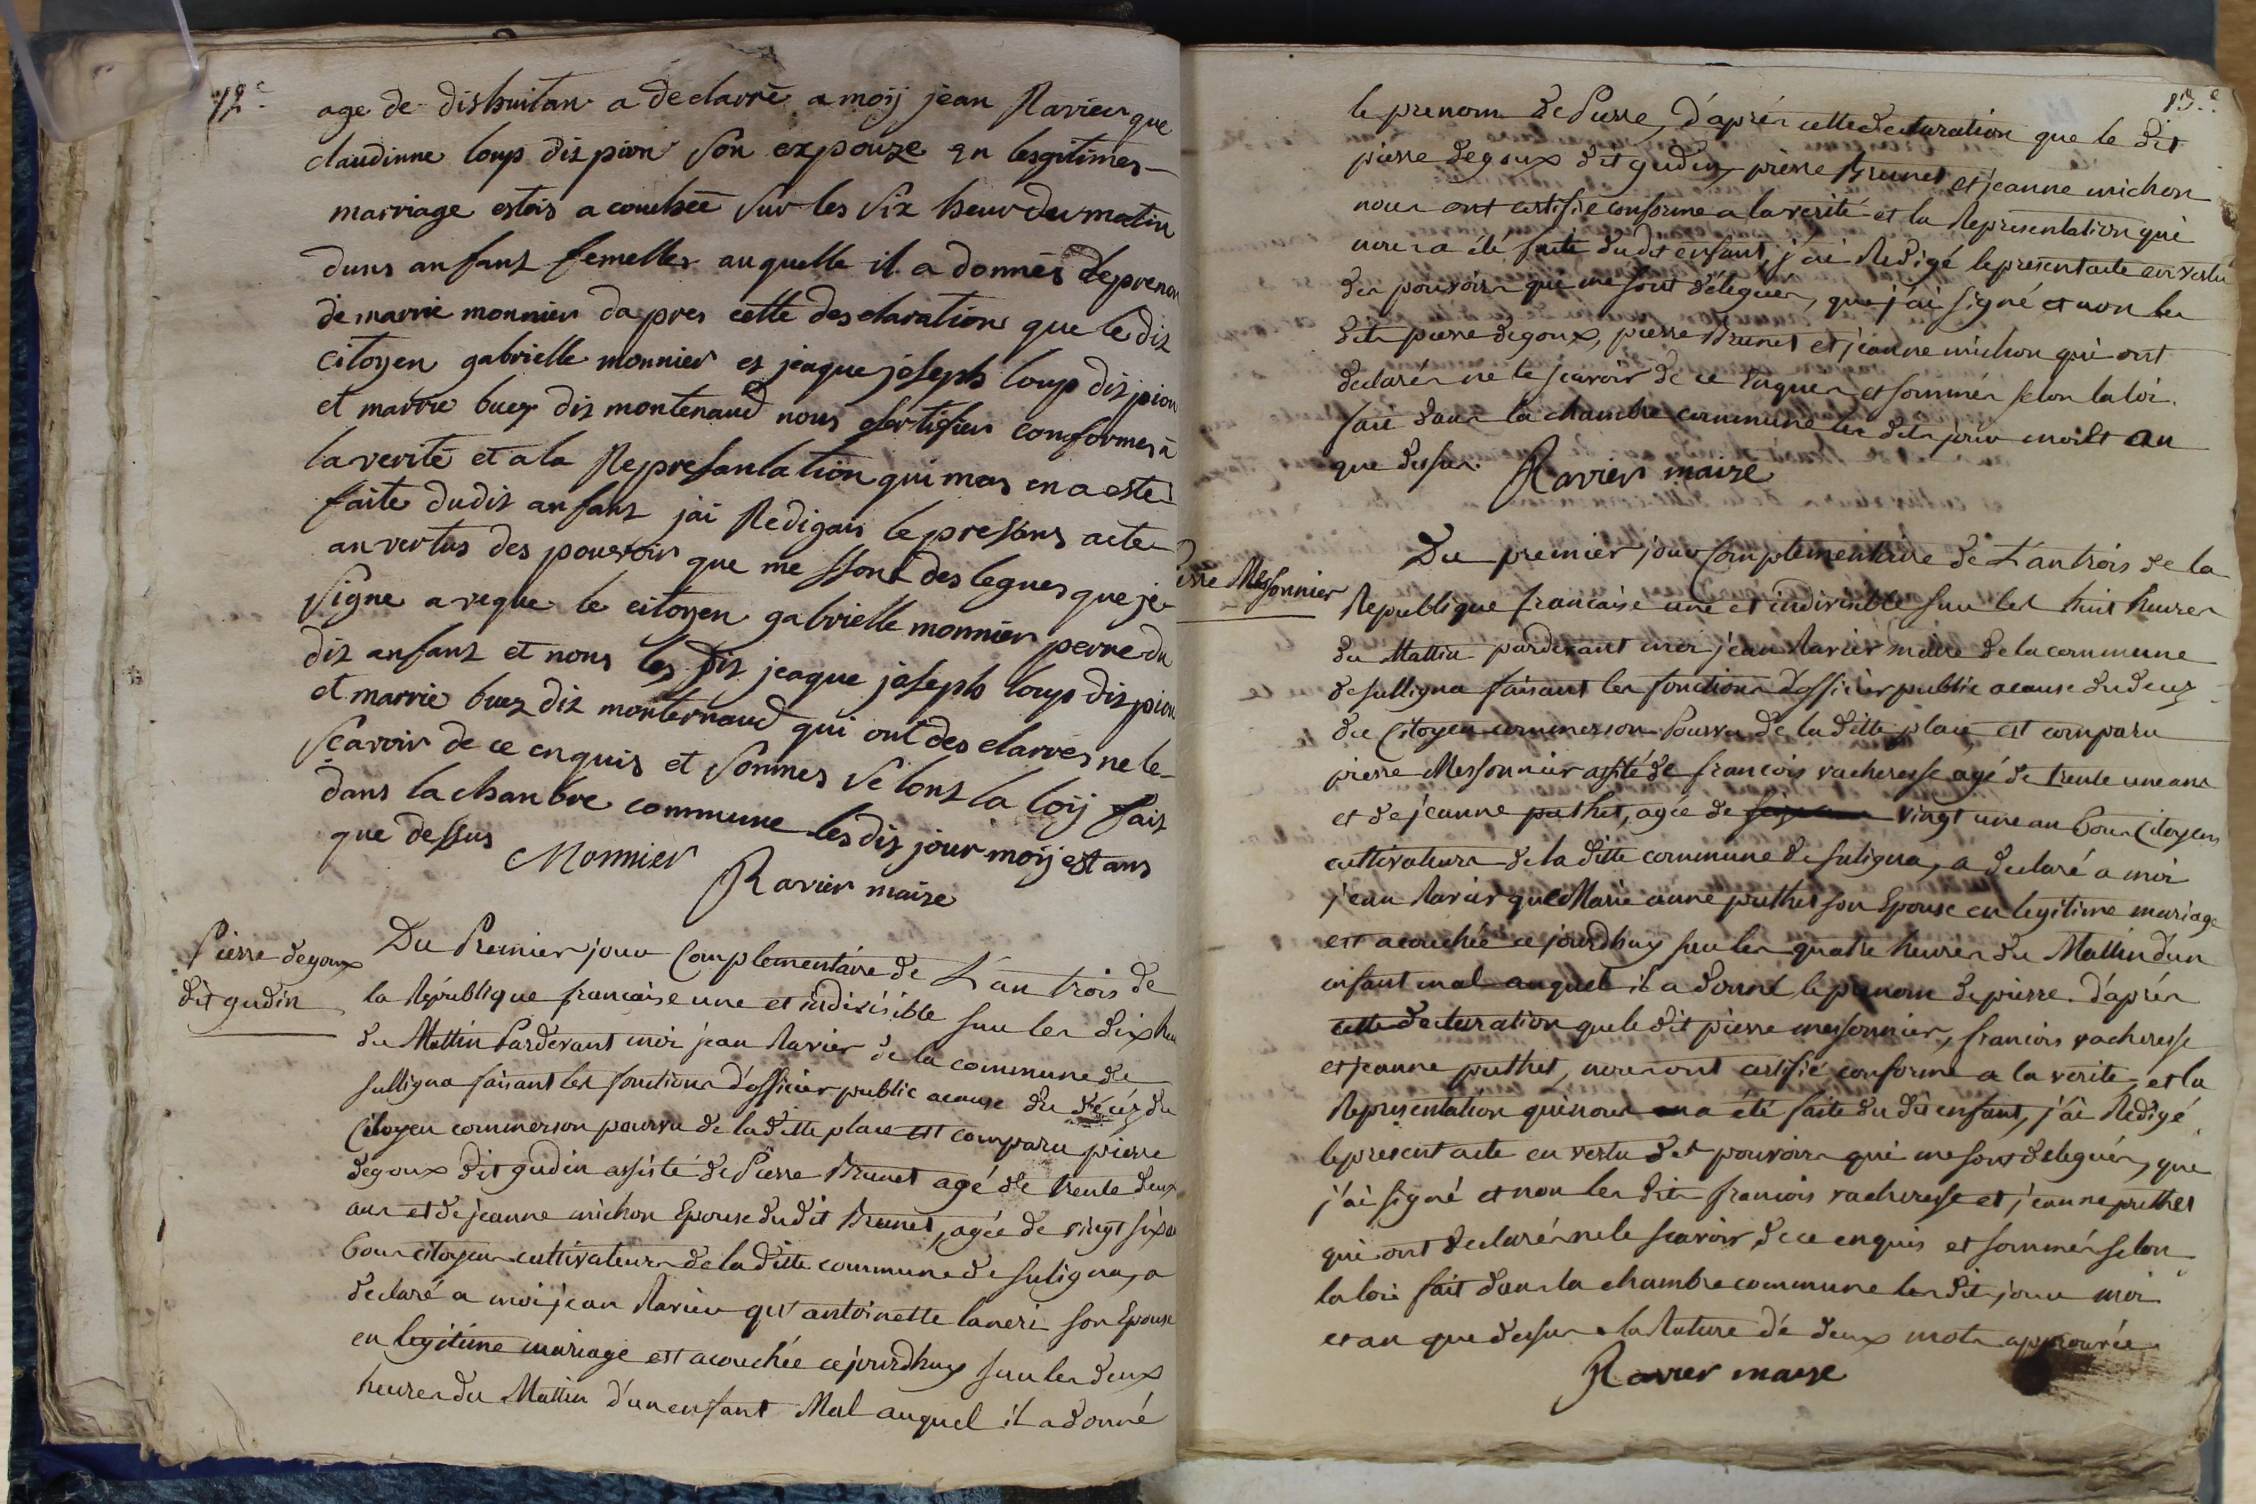 12e
age de dishuitan a declarré a moij jean Ravier que
claudinne loup dit pion son expouze en lesgitimes
marriage estois a couchee sur les six heur du matin
duns anfant femelles auquelle il a donnés le prenom
de marrie monnier dapres cette desclarations que le dit
citoyen gabrielle monnier et jeaque joseph loup dit pion
et marrie buez dit montenaud nous sertifier conformes a
la verité et a la Represantation qui mas en a esté
faite dudit anfant jai Redigais le presans acte
an vertus des pouvoir que me ssont deslegues que je
signe aveque le citoyen gabrielle monnier perre du
dit anfant et nons les dit jeaque joseph loup dit pion
et marrie buez dit monternaud qui ont desclarres ne le
scavoir de ce enquis et sommes selont la loij fait
dans la chanbre commune les dit jour moij est ans
que dessus
Monnier
Ravier maire
Pierre degoux
dit gudin
Du Premier jour Complementaire de L'an trois de
la République francaise une et indivisible sur les dix heu
du Mattin Pardevant moi jean Ravier de la commune de
sulligna faisant les fonctions d'officier public acause du décéz du
Citoyen commerson pourvu de la ditte place est comparu pierre
degoux dit gudin assisté de Pierre Brunet agé de trente deux
ans et de jeanne michon Epouse du dit Brunet, agée de vingt six an
tous citoyens cultivateurs de la ditte commune de suligna, a
declaré a moi jean Ravier qu'antoinette laneri son Epouse
en legitime mariage est acouchée cejourdhuy sur les deux
heures du Mattin d'un enfant Mal auquel il a donné
13.e
le prenom de Pierre, d'aprés cette declaration que le dit
pierre degoux dit gudin, pierre Brunet et jeanne michon
nous ont certifié conforme a la verité et la Representation qui
nous a été faite du dit enfant, j'ai Redigé le present acte en vertu
des pouvoirs qui me sont délégués, que j'ai signé et non les
dits pierre degoux, pierre Brunet et jeanne michon qui ont
declarés ne le scavoir de ce Enquis et sommés selon la loi.
fait dans la chambre commune les dits jour mois et an
que dessus.
Ravier maire
Messonnier
Du premier jour Complementaire de L'an trois de la
Republique francaise une et indivisible sur les huit heures
du Mattin pardevant moi jean Ravier maire de la commune
de sulligna faisant les fonctions d'officier public acause du decez
du Citoyen commerson Pourvu de la ditte place est comparu
pierre Messonnier assité de francois vacheresse agé de trente une ans
et de jeanne puthet, agée de vingt une an tous Citoyens
cultivateurs de la ditte commune de suligna, a declaré a moi
jean Ravier que Marie anne puthet son Epouse en legitime mariage
est acouchée ce jourdhuy sur les quatre heures du Mattin d'un
enfant mal auquel il a donné le prenom de pierre. d'aprés
cette declaration que le dit pierre messonnier, francois vacheresse
et jeanne puthet, nous ont certifié conforme a la verité, et la
Representation qui nous en a été faite du dit enfant, j'ai Redigé
le present acte en vertu des pouvoirs qui me sont delegués, que
j'ai signé et non les dits francois vacheresse et jeanne puthet
qui ont declarés ne le scavoir, de ce enquis et sommés selon
la loi fait dans la chambre commune les dit jour moi
et an que dessus la Rature dé deux mots approuvée
Ravier maire